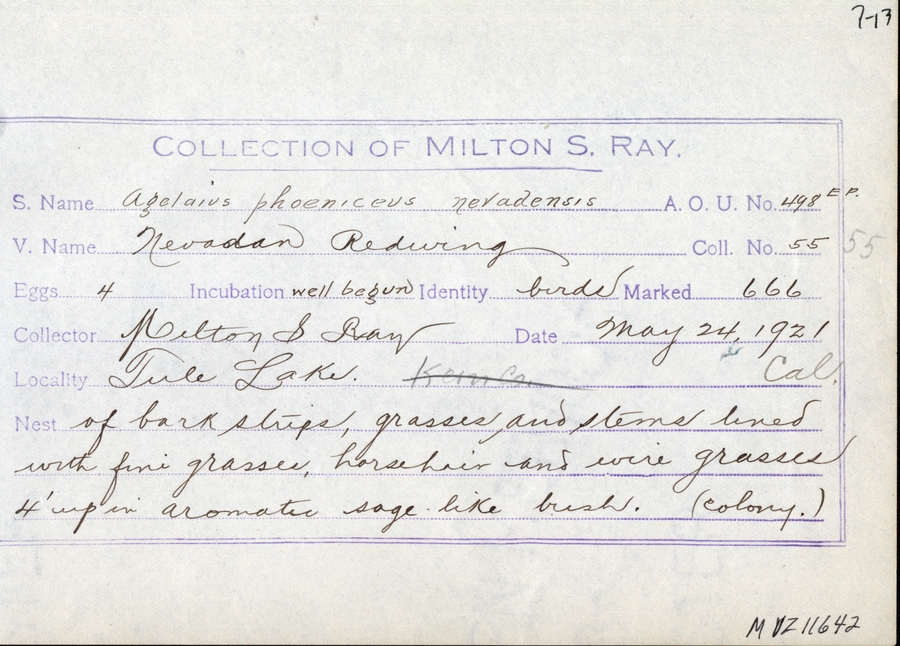 7-13
COLLECTION OF MILTON S. RAY.
S. Name Agelaius phoeniceus nevadensis A. O. U. No. 498 E P.
V. Name Nevadan Redwing Coll. No. 55 55
Eggs 4 Incubation well begun Identity birds Marked 666
Collector Milton S Ray Date May 24, 1921
Locality Tule Lake. Cal.
Nest of bark strips, grasses, and stems lined
with fine grasses, horsehair and wire grasses
4' up in aromatic sage-like bush. (colony.)
MVZ 11642